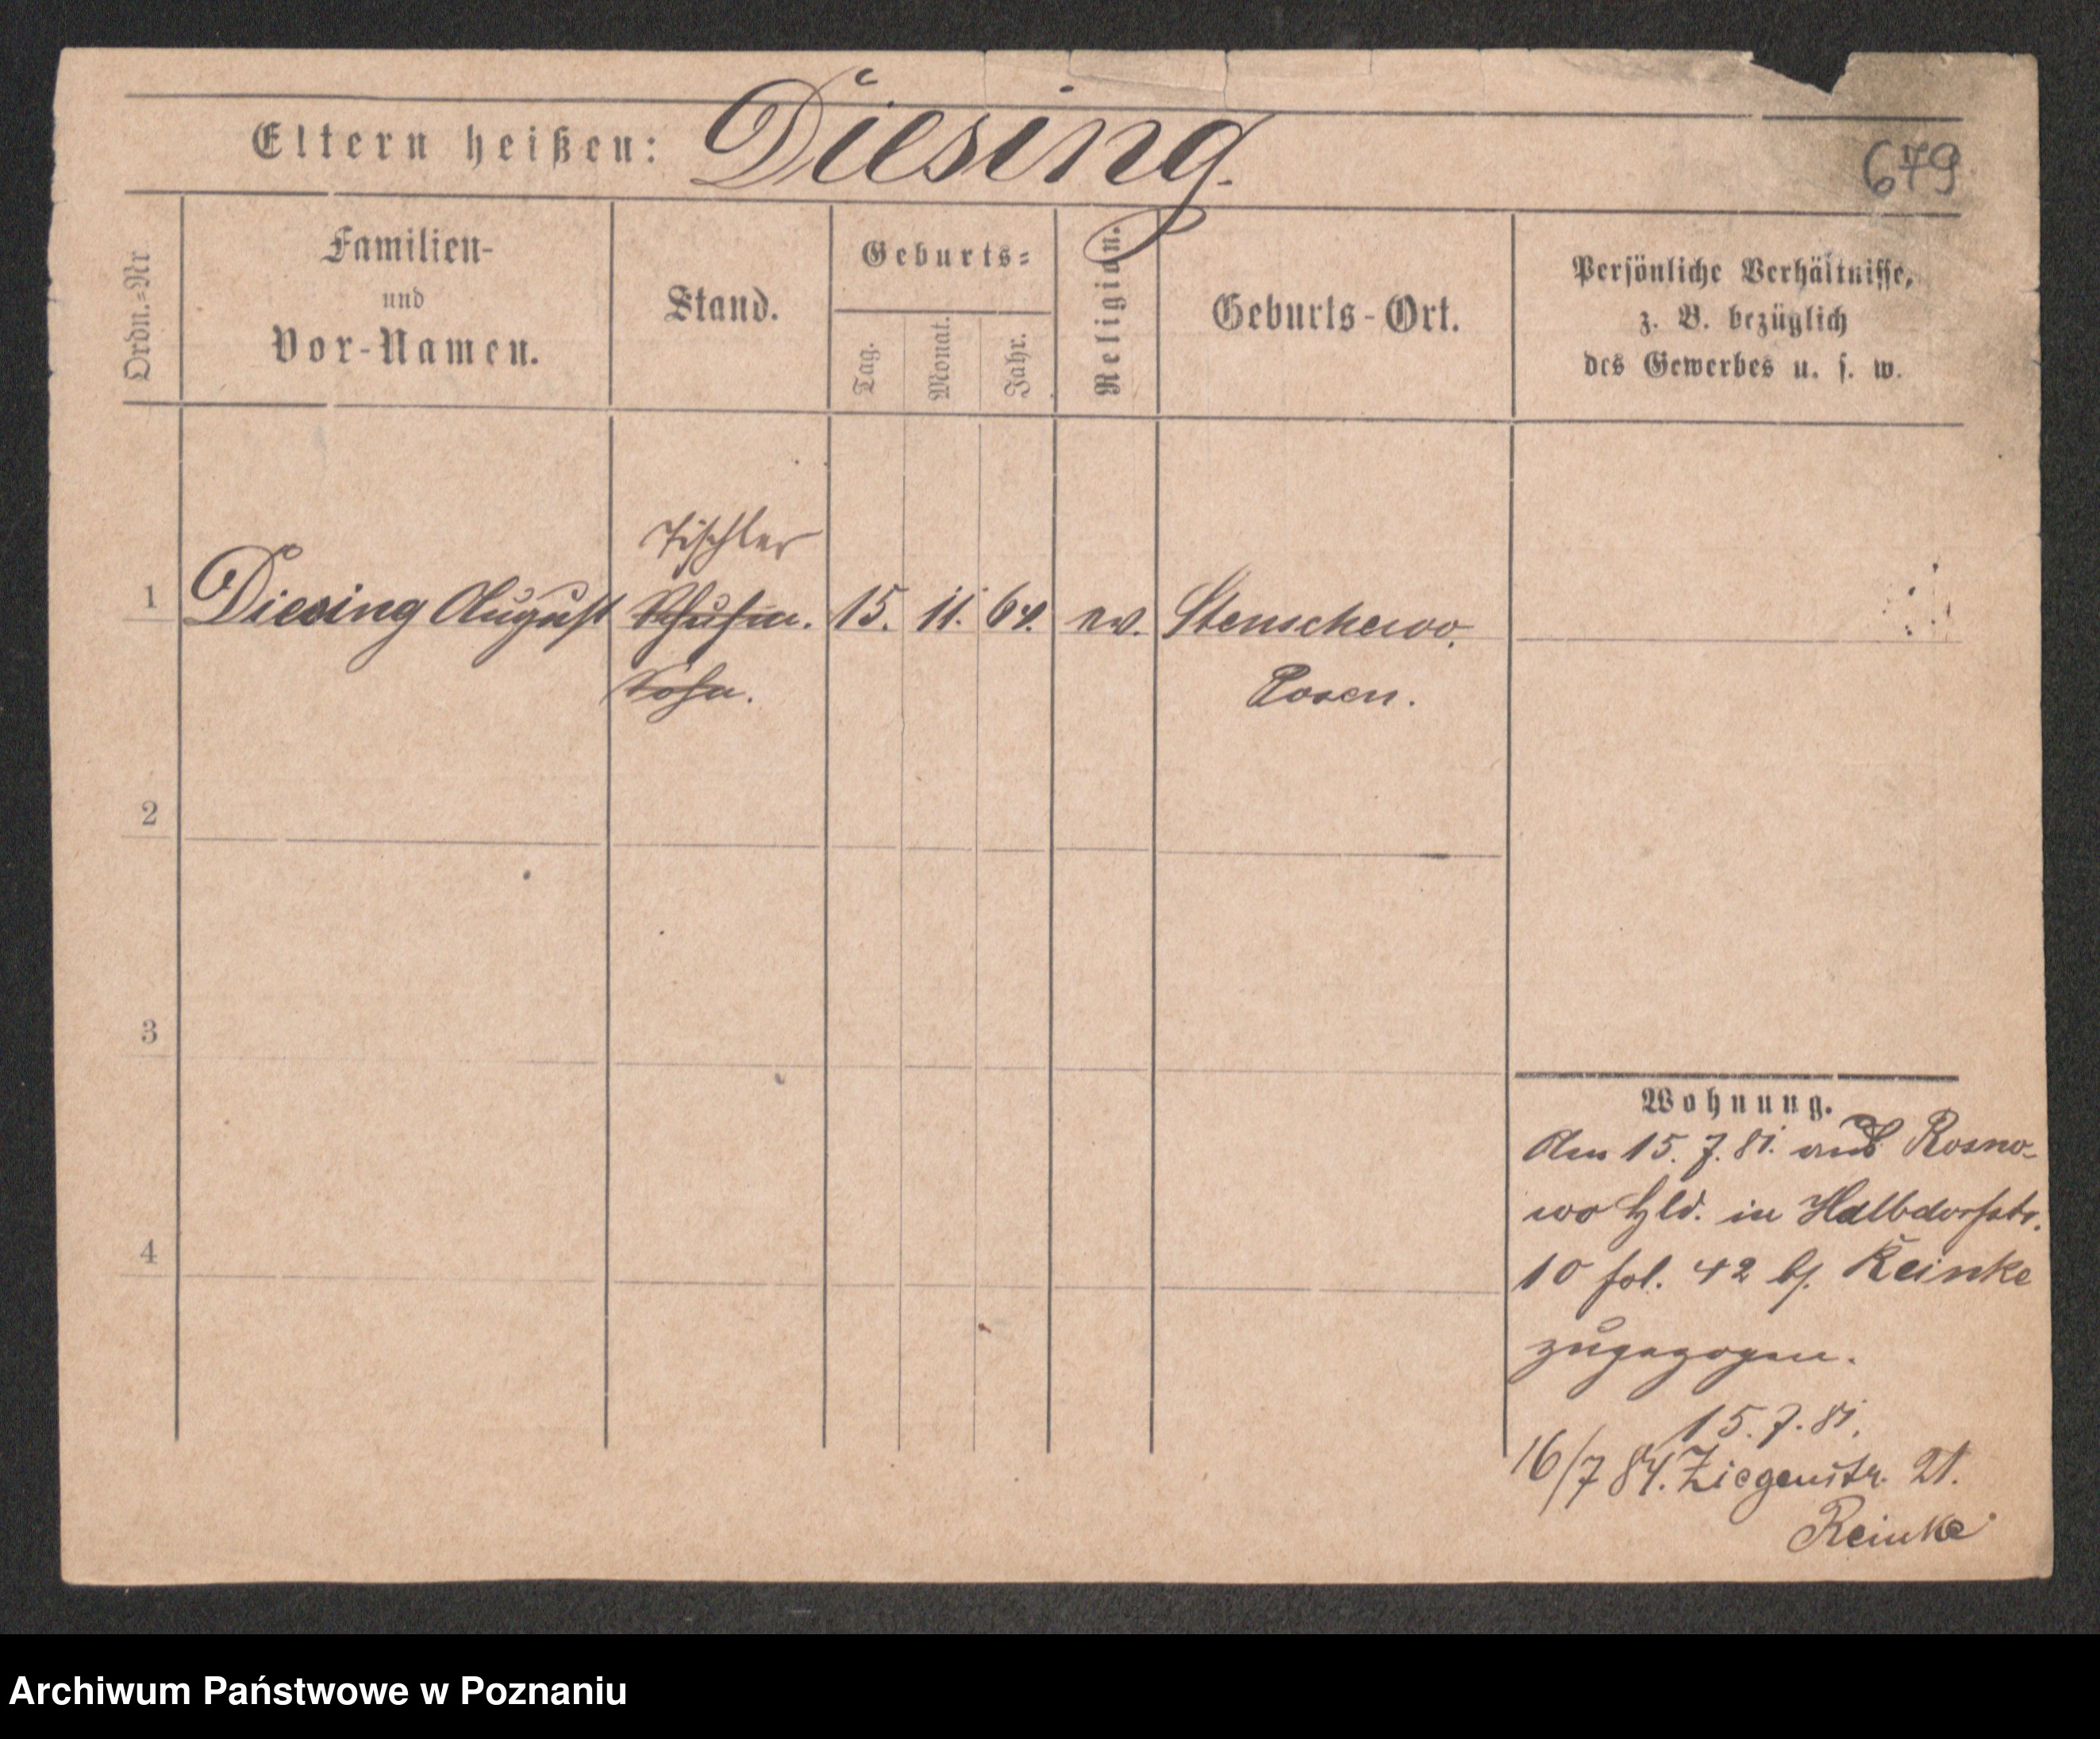 Eltern heißen: Diesing.
679
Ordn.=Nr
Familien-
und
Vor-Namen.
Stand.
Geburts=
Tag.
Monat.
Jahr.
Religion.
Geburts-Ort.
Persönliche Verhältnisse,
z. B. bezüglich
des Gewerbes u. s. w.
Tischler
1 Diesing August Schuhm. 15. 11. 64. ev. Stenschewo.
Sohn. Posen.
2
3
4
Wohnung.
Am 15. 7. 81. aus Rosno-
wo Hld. in Halbdorfstr.
10 fol. 42 b/. Reinke
zugezogen.
15. 7. 81.
16/7 84. Ziegenstr. 21.
Reinke
Archiwum Państwowe w Poznaniu